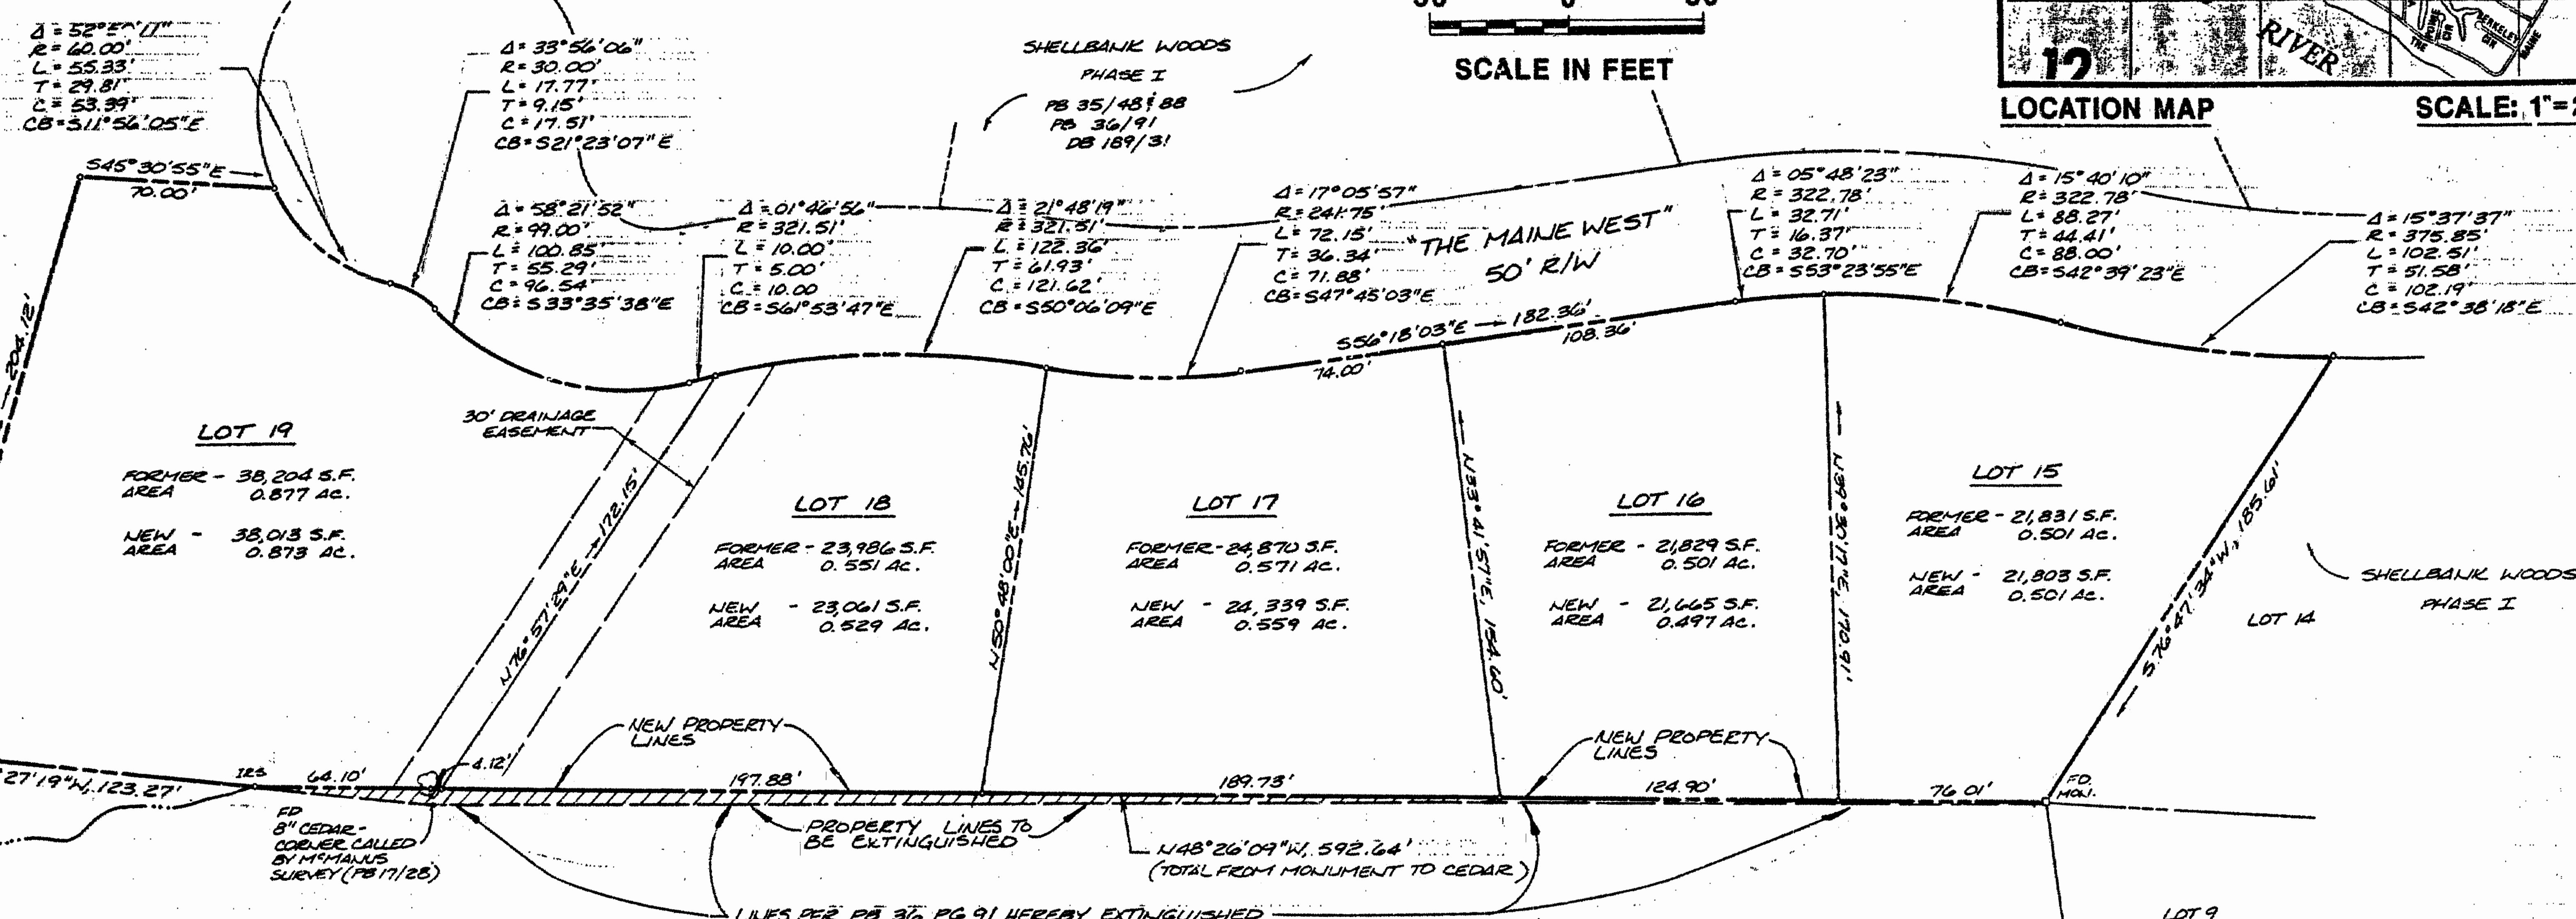 Δ = 52°
R = 60.00'
L = 55.33'
T = 29.81'
C = 53.39'
CB = S11°56'05"E
Δ = 33°56'06"
R = 30.00'
L = 17.77'
T = 9.15'
C = 17.51'
CB = S21°23'07"E
SHELLBANK WOODS
PHASE I
PB 35/48 & 88
PB 36/91
DB 189/31
0
SCALE IN FEET
12
RIVER
THE
BERKELEY
CIR
MAINE
LOCATION MAP
SCALE: 1"=
S45°30'55"E
70.00'
204.12'
Δ = 58°21'52"
R = 99.00'
L = 100.85'
T = 55.29'
C = 96.54'
CB = S33°35'38"E
Δ = 01°46'56"
R = 321.51'
L = 10.00'
T = 5.00'
C = 10.00
CB = S61°53'47"E
Δ = 21°48'19"
R = 321.51'
L = 122.36'
T = 61.93'
C = 121.62'
CB = S50°06'09"E
Δ = 17°05'57"
R = 241.75'
L = 72.15'
T = 36.34'
C = 71.88'
CB = S47°45'03"E
"THE MAINE WEST"
50' R/W
Δ = 05°48'23"
R = 322.78'
L = 32.71'
T = 16.37'
C = 32.70'
CB = S53°23'55"E
Δ = 15°40'10"
R = 322.78'
L = 88.27'
T = 44.41'
C = 88.00'
CB = S42°39'23"E
Δ = 15°37'37"
R = 375.85'
L = 102.51'
T = 51.58'
C = 102.19'
CB = S42°38'18"E
S56°18'03"E 182.36'
74.00'
108.36'
30' DRAINAGE
EASEMENT
LOT 19
FORMER - 38,204 S.F.
AREA 0.877 AC.
NEW - 38,013 S.F.
AREA 0.873 AC.
N76°57'29"E 172.15'
LOT 18
FORMER - 23,986 S.F.
AREA 0.551 AC.
NEW - 23,061 S.F.
AREA 0.529 AC.
N50°48'00"E 145.76'
LOT 17
FORMER - 24,870 S.F.
AREA 0.571 AC.
NEW - 24,339 S.F.
AREA 0.559 AC.
N33°41'57"E, 154.60'
LOT 16
FORMER - 21,829 S.F.
AREA 0.501 AC.
NEW - 21,665 S.F.
AREA 0.497 AC.
N39°30'17"E, 170.91'
LOT 15
FORMER - 21,831 S.F.
AREA 0.501 AC.
NEW - 21,803 S.F.
AREA 0.501 AC.
S76°47'34"W, 185.61'
SHELLBANK WOODS
PHASE I
LOT 14
27'19"W, 123.27'
IRS
64.10'
4.12'
NEW PROPERTY
LINES
197.88'
189.73'
NEW PROPERTY
LINES
124.90'
76.01'
FD.
MON.
FD
8" CEDAR-
CORNER CALLED
BY McMANUS
SURVEY (PB 17/28)
PROPERTY LINES TO
BE EXTINGUISHED
N48°26'09"W, 592.64'
(TOTAL FROM MONUMENT TO CEDAR)
LINES PER PB 36 PG 91 HEREBY EXTINGUISHED
LOT 9